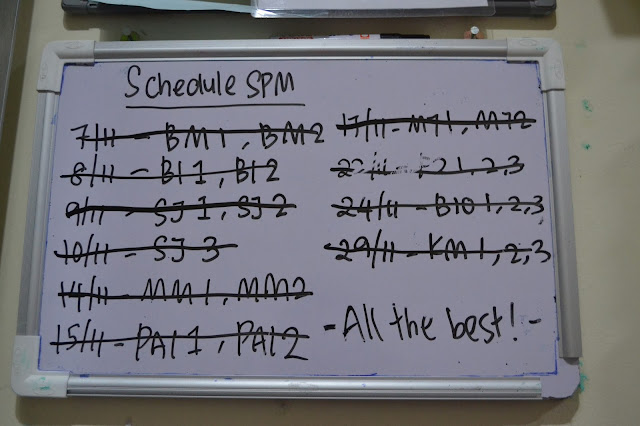 Schedule SPM
7/11 - BM1, BM2
8/11 - BI1, BI2
9/11 - SJ1, SJ2
10/11 - SJ 3
14/11 - MM1, MM2
15/11 - PAI1, PAI2
17/11 - MT1, MT2
1,2,3
24/11 - BIO 1,2,3
29/11 - KM1,2,3
- All the best! -